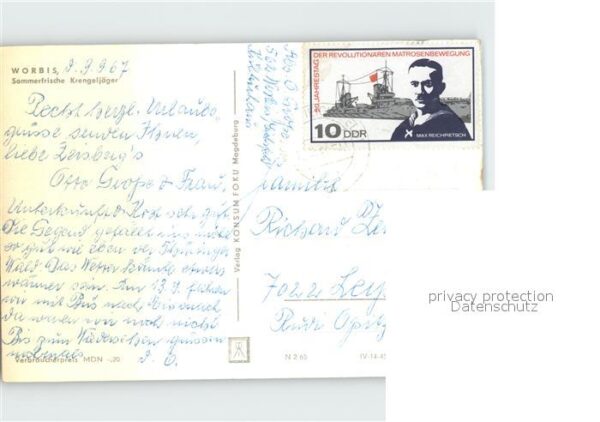 WORBIS, d. 9.9.67
Sommerfrische Krengeljäger
Recht herzl. Urlaubs-
grüsse senden Ihnen,
liebe Zeisberg's
Otto Grope & Frau.
Unterkunft & Kost sehr gut.
Die Gegend gefällt uns nicht
so gut wie eben der Thüringer
Wald. Das Wetter könnte etwas
wärmer sein. Am 13.9. fahren
wir mit Bus nach Eisenach,
da waren wir noch nicht
Bis zum Wiedersehen grüssen
nochmals d. O.
Verbraucherpreis MDN -,20
Verlag KONSUM FOKU Magdeburg
Abs. O.
562 Worbis
50. JAHRESTAG DER REVOLUTIONÄREN MATROSENBEWEGUNG
10 DDR
MAX REICHPIETSCH
Familie
Richard
702 Leip
Rudi Opitz
N 2 65
IV-14-45
privacy protection
Datenschutz